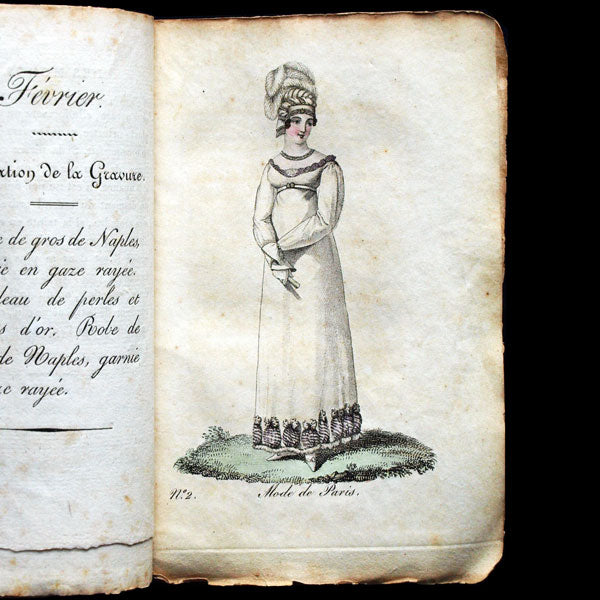 Février.
ation de la Gravure.
de gros de Naples,
ie en gaze rayée.
deau de perles et
s d'or. Robe de
de Naples, garnie
ze rayée.
N.º 2.
Mode de Paris.